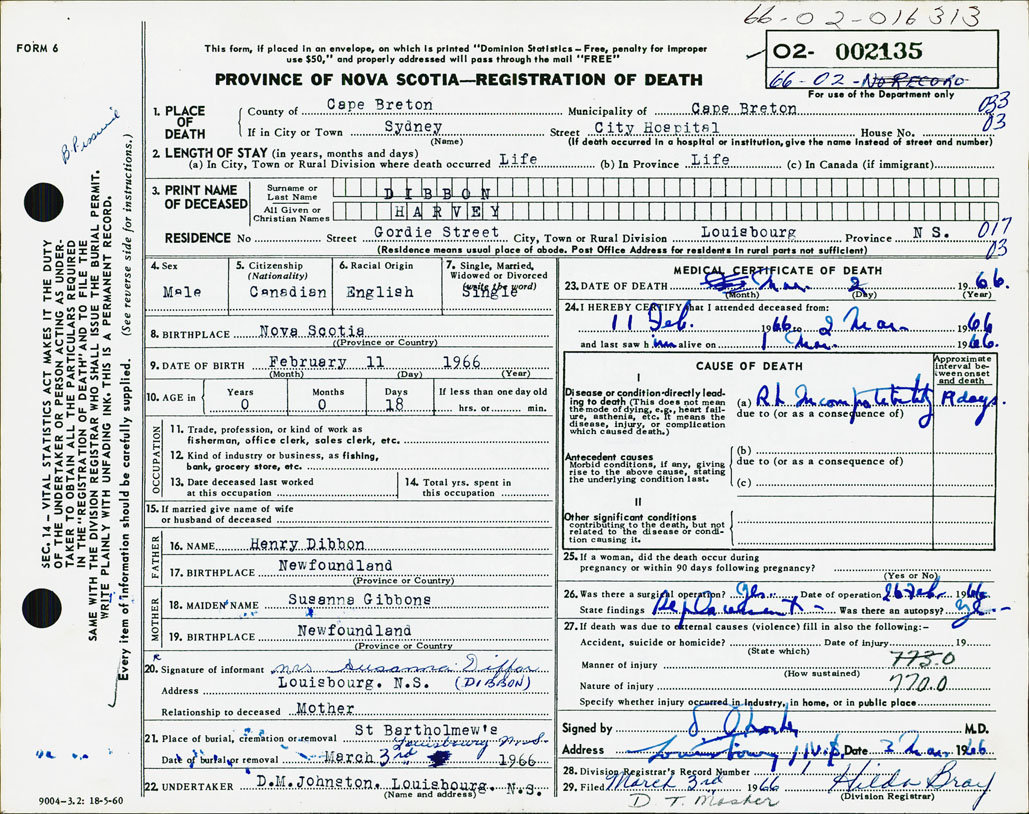 66-02-016313
FORM 6
This form, if placed in an envelope, on which is printed "Dominion Statistics – Free, penalty for improper
use $50," and properly addressed will pass through the mail "FREE"
02- 002135
66-02-NO RECORD
For use of the Department only
PROVINCE OF NOVA SCOTIA—REGISTRATION OF DEATH
1. PLACE OF DEATH
County of Cape Breton Municipality of Cape Breton 033
If in City or Town Sydney Street City Hospital House No. 03
(Name) (If death occurred in a hospital or institution, give the name instead of street and number)
2. LENGTH OF STAY (in years, months and days)
(a) In City, Town or Rural Division where death occurred Life (b) In Province Life (c) In Canada (if immigrant)
3. PRINT NAME OF DECEASED
Surname or Last Name DIBBON
All Given or Christian Names HARVEY
RESIDENCE No Street Gordie Street City, Town or Rural Division Louisbourg Province N S. 017
(Residence means usual place of abode. Post Office Address for residents in rural parts not sufficient) 03
4. Sex Male
5. Citizenship (Nationality) Canadian
6. Racial Origin English
7. Single, Married, Widowed or Divorced (write the word) Single
8. BIRTHPLACE Nova Scotia
(Province or Country)
9. DATE OF BIRTH February 11 1966
(Month) (Day) (Year)
10. AGE in Years 0 Months 0 Days 18 If less than one day old hrs. or min.
OCCUPATION
11. Trade, profession, or kind of work as
fisherman, office clerk, sales clerk, etc.
12. Kind of industry or business, as fishing,
bank, grocery store, etc.
13. Date deceased last worked
at this occupation
14. Total yrs. spent in
this occupation
15. If married give name of wife
or husband of deceased
FATHER
16. NAME Henry Dibbon
17. BIRTHPLACE Newfoundland
(Province or Country)
MOTHER
18. MAIDEN NAME Susanna Gibbons
19. BIRTHPLACE Newfoundland
(Province or Country
20. Signature of informant Mrs Susanna
Address Louisbourg. N.S. (DIBBON)
Relationship to deceased Mother
21. Place of burial, cremation or removal St Bartholmew's
Louisbourg N.S.
Date of burial or removal March 3rd 1966
22. UNDERTAKER D.M. Johnston. Louisbourg. N.S.
(Name and address)
9004–3.2: 18-5-60
MEDICAL CERTIFICATE OF DEATH
23. DATE OF DEATH Mar 2 1966.
(Month) (Day) (Year)
24. I HEREBY CERTIFY that I attended deceased from:
11 Feb. 1966 to 2 Mar. 1966
and last saw him alive on 1 Mar. 1966.
CAUSE OF DEATH
Approximate interval between onset and death
I
Disease or condition directly leading to death (This does not mean
the mode of dying, e.g., heart failure, asthenia, etc. It means the
disease, injury, or complication
which caused death.)
(a) Rh Incompatibility 19 days.
due to (or as a consequence of)
Antecedent causes
Morbid conditions, if any, giving
rise to the above cause, stating
the underlying condition last.
(b)
due to (or as a consequence of)
(c)
II
Other significant conditions
contributing to the death, but not
related to the disease or condition causing it.
25. If a woman, did the death occur during
pregnancy or within 90 days following pregnancy?
(Yes or No)
26. Was there a surgical operation? Yes Date of operation Feb. 1966
State findings Replacement – Was there an autopsy?
27. If death was due to external causes (violence) fill in also the following:–
Accident, suicide or homicide? Date of injury 19
(State which)
773.0
Manner of injury
(How sustained)
770.0
Nature of injury
Specify whether injury occurred in industry, in home, or in public place
Signed by M.D.
Address Louisbourg N.S. Date 2 Mar 1966
28. Division Registrar's Record Number
29. Filed March 3rd 1966 Hilda Bray
(Division Registrar)
D T. Mosher
SEC. 14 – VITAL STATISTICS ACT MAKES IT THE DUTY
OF THE UNDERTAKER OR PERSON ACTING AS UNDERTAKER TO OBTAIN ALL THE PARTICULARS REQUIRED
IN THE "REGISTRATION OF DEATH" AND TO FILE THE
SAME WITH THE DIVISION REGISTRAR WHO SHALL ISSUE THE BURIAL PERMIT.
WRITE PLAINLY WITH UNFADING INK. THIS IS A PERMANENT RECORD.
Every item of information should be carefully supplied. (See reverse side for instructions.)